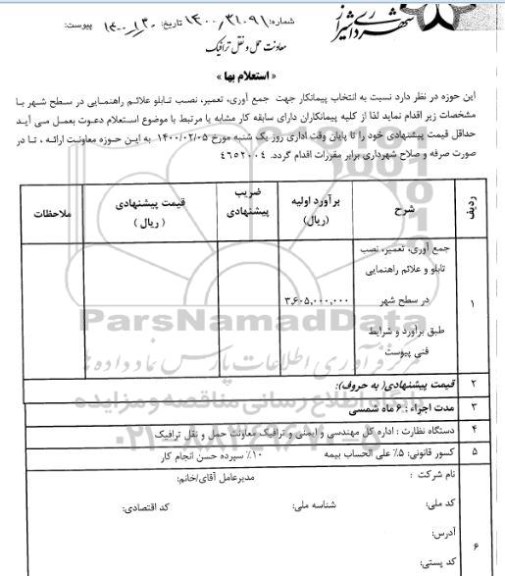 شهرداری شیراز
شماره: ۱۴۰۰/۳۱۰۹۱ تاریخ: ۱۴۰۰/۱/۳۰ پیوست:
معاونت حمل و نقل ترافیک
« استعلام بها »
این حوزه در نظر دارد نسبت به انتخاب پیمانکار جهت جمع آوری، تعمیر، نصب تابلو علائم راهنمایی در سطح شهر با
مشخصات زیر اقدام نماید لذا از کلیه پیمانکاران دارای سابقه کار مشابه یا مرتبط با موضوع استعلام دعوت بعمل می آید
حداقل قیمت پیشنهادی خود را تا پایان وقت اداری روز یک شنبه مورخ ۱۴۰۰/۰۲/۰۵ به این حوزه معاونت ارائه ، تا در
صورت صرفه و صلاح شهرداری برابر مقررات اقدام گردد. ۴۶۵۲۰۰۴
ردیف شرح برآورد اولیه (ریال) ضریب پیشنهادی قیمت پیشنهادی ( ریال ) ملاحظات
۱ جمع آوری، تعمیر، نصب
تابلو و علائم راهنمایی
در سطح شهر ۳,۶۰۵,۰۰۰,۰۰۰
طبق برآورد و شرایط
فنی پیوست
۲ قیمت پیشنهادی( به حروف):
۳ مدت اجراء : ۶ ماه شمسی
۴ دستگاه نظارت : اداره کل مهندسی و ایمنی و ترافیک معاونت حمل و نقل ترافیک
۵ کسور قانونی: ۵٪ علی الحساب بیمه ۱۰٪ سپرده حسن انجام کار
۶ نام شرکت : مدیرعامل آقای/خانم:
کد ملی: شناسه ملی: کد اقتصادی:
آدرس:
کد پستی:
ParsNamadData
مرکز فرآوری اطلاعات پارس نماد داده ها
پایگاه اطلاع رسانی مناقصه و مزایده